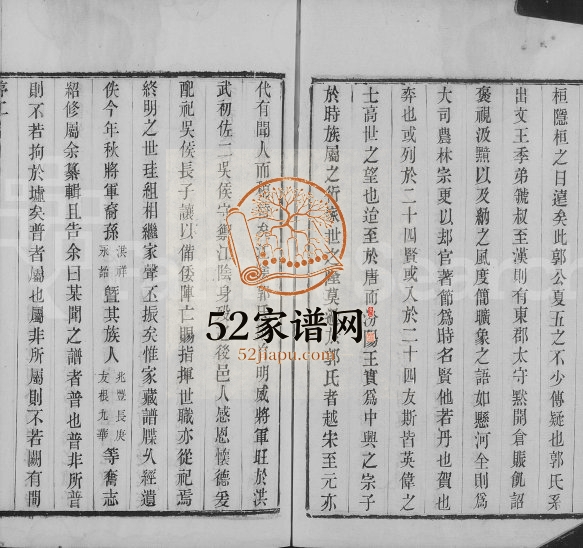 桓隱桓之日達矣此郭公夏五之不少傳疑也郭氏系
出文王季弟虢叔至漢則有東郡太守默開倉賑飢詔
褒視汲黯以及勷之風度簡曠象之語如懸河全則為
大司農林宗更以却官著節為時名賢他若丹也賀也
弈也或列於二十四賢或入於二十四友斯皆英偉之
士高世之望也迨至於唐而汾陽王實為中興之宗子
於時族屬之行
世之
莫
郭氏者越宋至元亦
代有聞人而
矣
明威將軍旺於洪
武初佐二吳侯守禦江陰身
後邑人感恩懷德爰
配祀吳侯長子讓以備倭陣亡賜指揮世職亦從祀焉
終明之世珪組相繼家聲丕振矣惟家藏譜牒久經遺
佚今年秋將軍裔孫洪祥永錩暨其族人兆豐長庚友根允華等喬志
紹修屬余纂輯且告余曰某聞之譜者普也普非所普
則不若拘於墟矣普者屬也屬非所屬則不若闕有間
序二
52家谱网
52jiapu.com